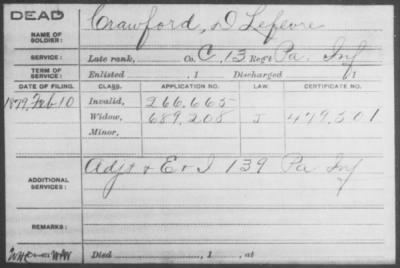 DEAD
NAME OF SOLDIER: Crawford, D Lefevre
SERVICE: Late rank, Co. C, 13 Reg't Pa. Inf
TERM OF SERVICE: Enlisted , 1 Discharged , 1
DATE OF FILING. CLASS. APPLICATION NO. LAW. CERTIFICATE NO.
1879, Feb 10 Invalid, 266.665
Widow, 689.208 J 479.501
Minor,
ADDITIONAL SERVICES: Adjt & E & I 139 Pa Inf
REMARKS:
Died , 1 , at